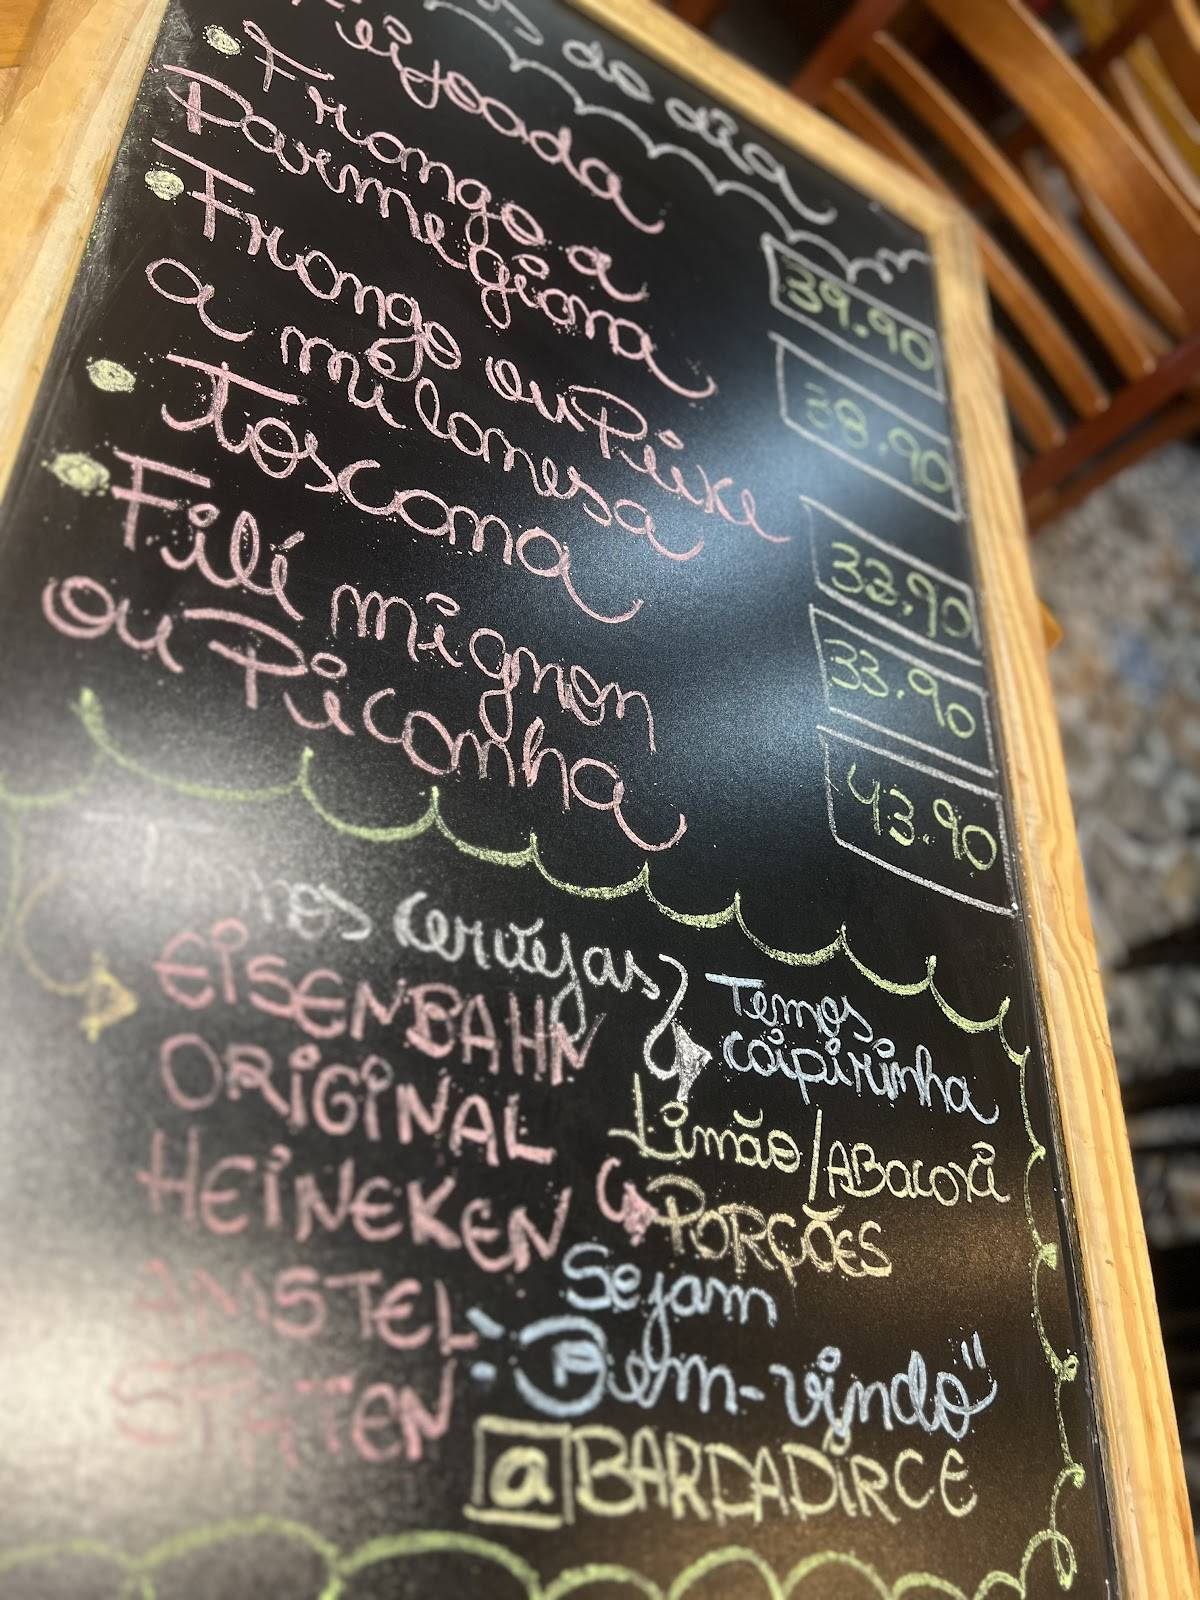 do dia
Feijoada
Frango a
Parmegiana
39.90
Frango ou Peixe
a milanesa
38.90
Toscana
33.90
Filé mignon
33.90
ou Picanha
43.90
cervejas
EISENBAHN
ORIGINAL
HEINEKEN
AMSTEL
STATTEN
Temos
caipirinha
Limão/ABacaxi
PORÇÕES
Sejam
"Bem-vindo"
@BARDADIRCE